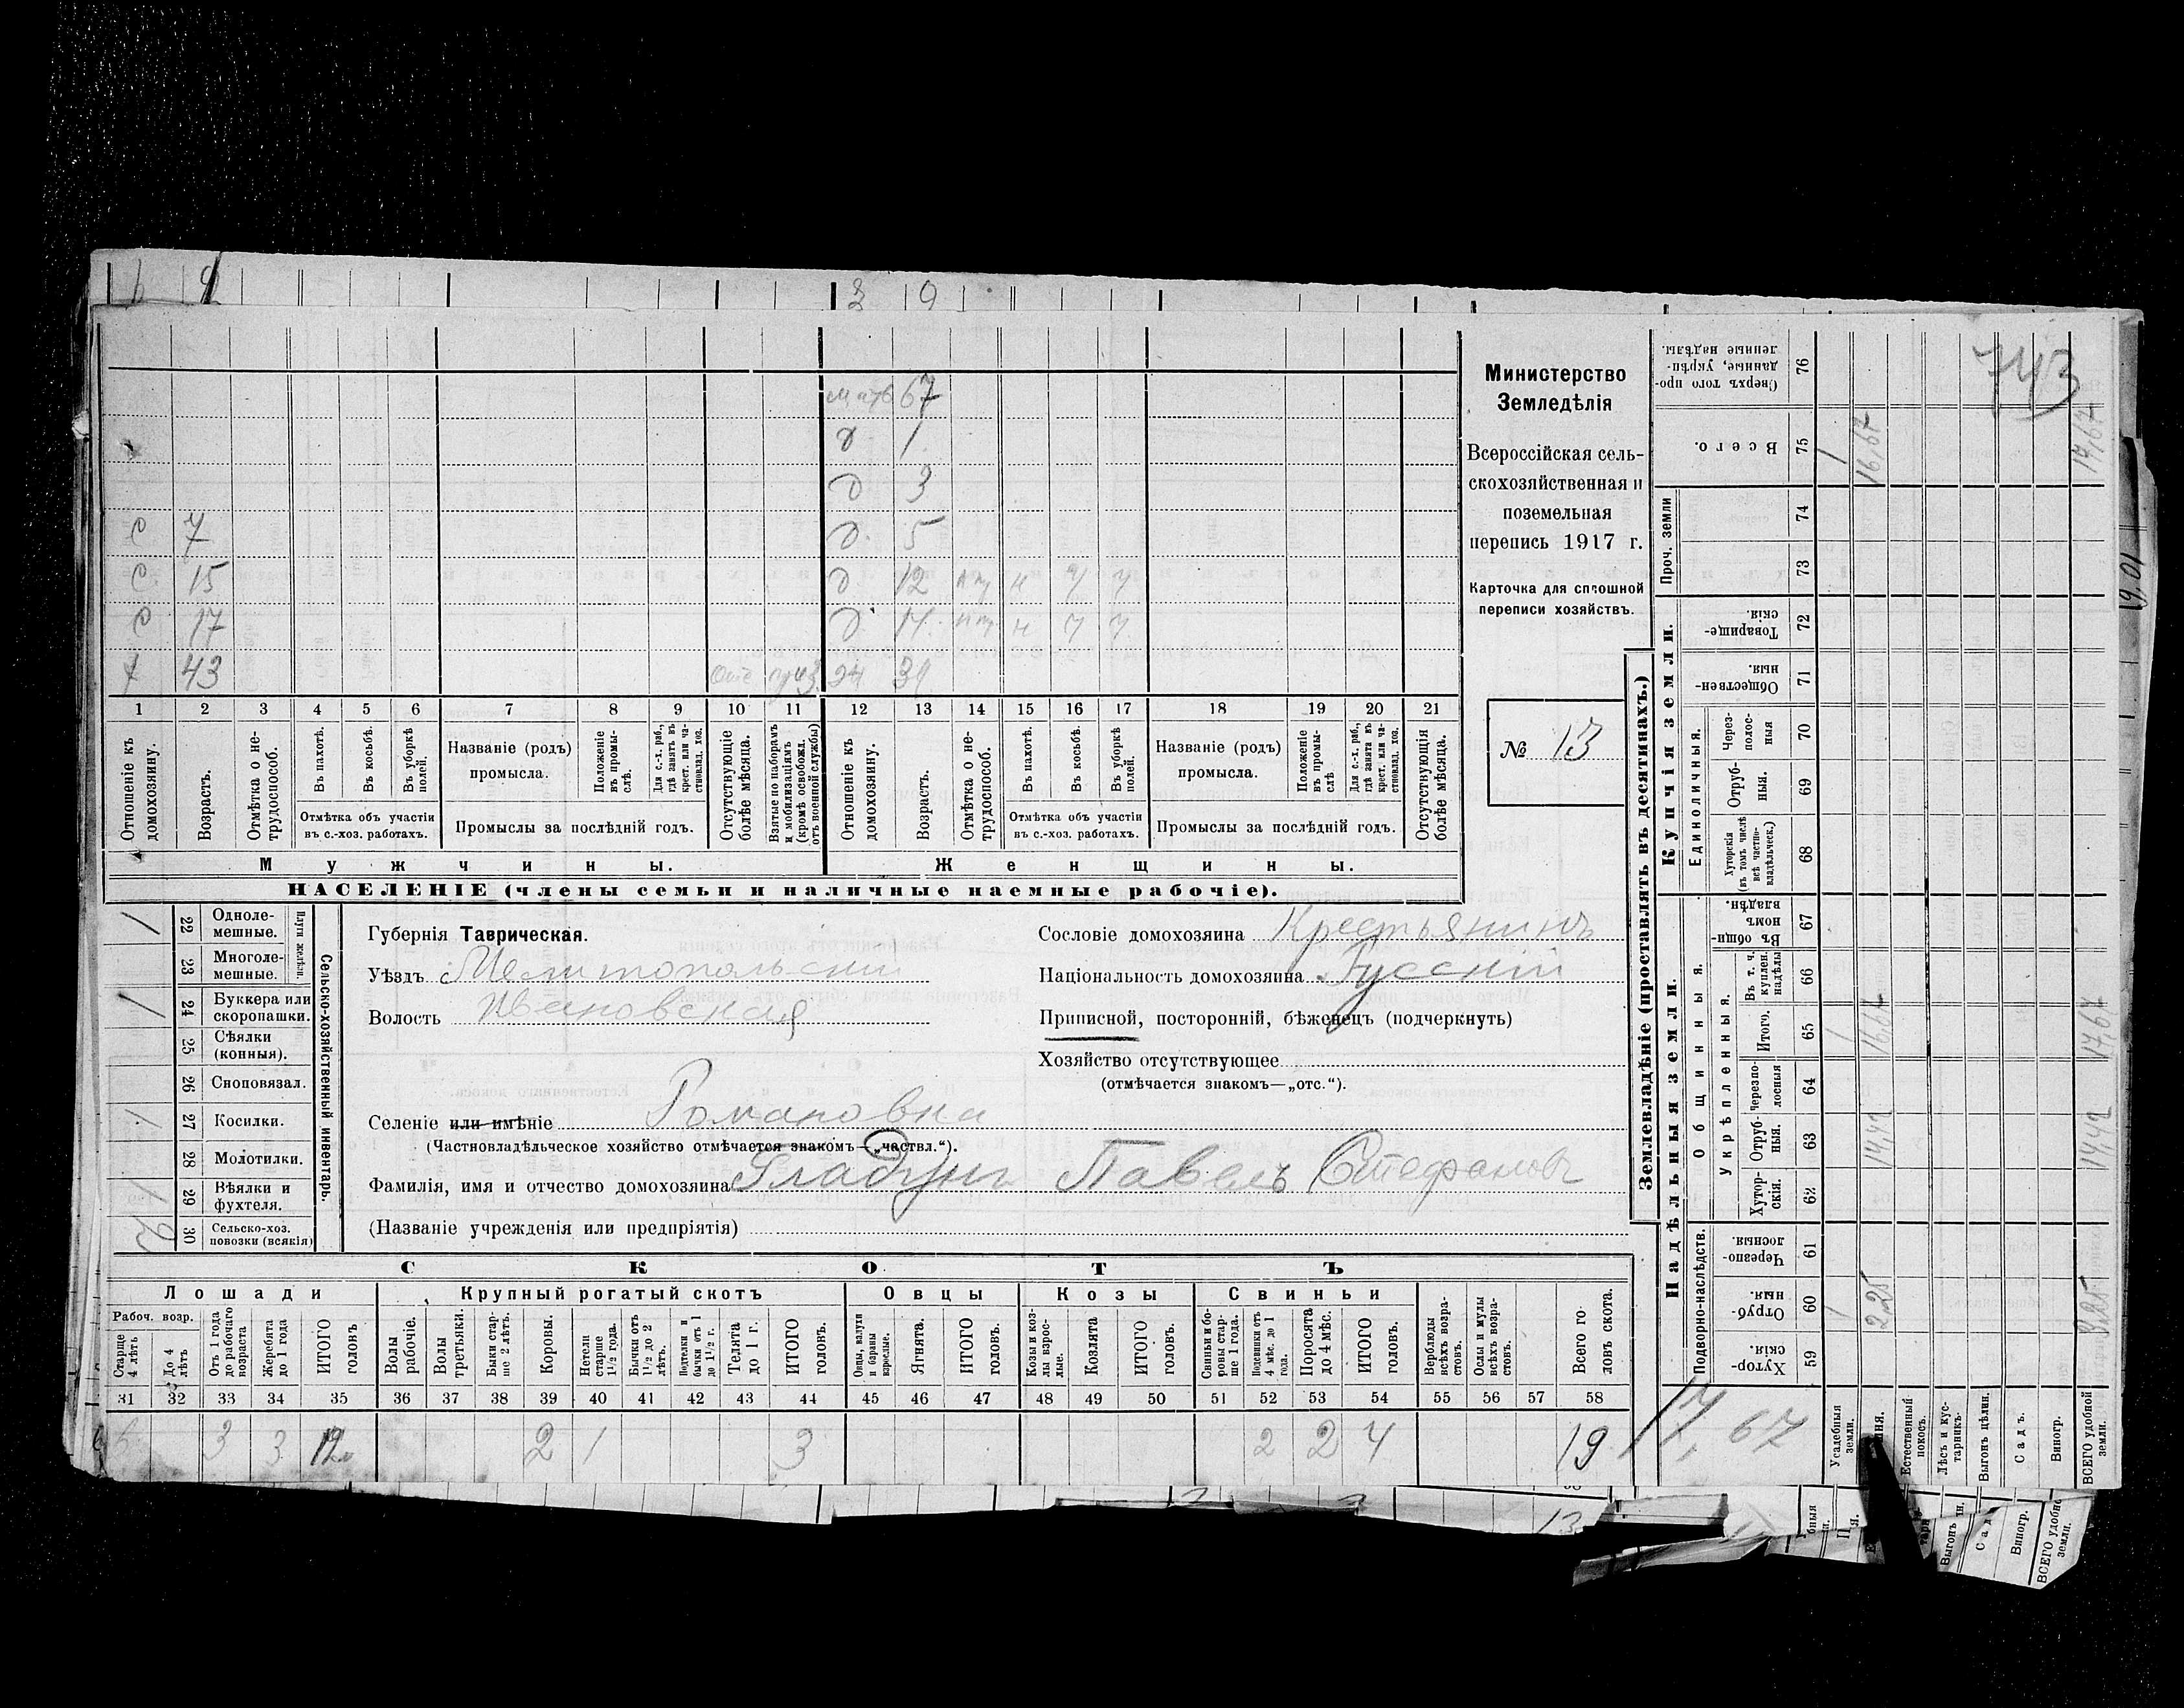 Министерство
Земледѣлія
Всероссійская сель-
скохозяйственная и
поземельная
перепись 1917 г.
Карточка для сплошной
переписи хозяйствъ.
№ 13
мать 67
д 1
д 3
с 7 д. 5
с. 15 д 12 н ч ч
с 17 д. 14. н ч ч
х 43 39
1 2 3 4 5 6 7 8 9 10 11 12 13 14 15 16 17 18 19 20 21
Отношеніе къ домохозяину.
Возрастъ.
Отмѣтка о не-трудоспособ.
Въ пахотѣ.
Въ косьбѣ.
Въ уборкѣ полей.
Отмѣтка объ участіи въ с.-хоз. работахъ.
Названіе (родъ) промысла.
Положеніе въ промы-слѣ.
Для с.-х. раб., гдѣ занятъ въ крест. или ча-стновлад. хоз.
Промыслы за послѣдній годъ.
Отсутствующіе болѣе мѣсяца.
Взятые по наборамъ и мобилизаціямъ (кромѣ освобожд. отъ военной службы)
Отношеніе къ домохозяину.
Возрастъ.
Отмѣтка о не-трудоспособ.
Въ пахотѣ.
Въ косьбѣ.
Въ уборкѣ полей.
Отмѣтка объ участіи въ с.-хоз. работахъ.
Названіе (родъ) промысла.
Положеніе въ промы-слѣ
Для с.-х. раб., гдѣ занята въ крест. или ча-стновлад. хоз.
Промыслы за послѣдній годъ.
Отсутствующія болѣе мѣсяца.
Мужчины. Женщины.
НАСЕЛЕНІЕ (члены семьи и наличные наемные рабочіе).
Сельско-хозяйственный инвентарь.
Плуги желѣзн.
1 22 Одноле-мешные.
23 Многоле-мешные.
1 24 Буккера или скоропашки.
25 Сѣялки (конныя).
26 Сноповязал.
1 27 Косилки.
28 Молотилки.
1 29 Вѣялки и фухтеля.
2 30 Сельско-хоз. повозки (всякія)
Губернія Таврическая.
Уѣздъ Мелитопольскій
Волость Ивановская
Селеніе или имѣніе Романовка
(Частновладѣльческое хозяйство отмѣчается знакомъ—„частвл.“).
Фамилія, имя и отчество домохозяина Гладунъ Павелъ Стефановъ
(Названіе учрежденія или предпріятія)
Сословіе домохозяина Крестьянинъ
Національность домохозяина Русскій
Приписной, посторонній, бѣженецъ (подчеркнуть)
Хозяйство отсутствующее
(отмѣчается знакомъ—„отс.“).
СКОТЪ
Лошади Крупный рогатый скотъ Овцы Козы Свиньи
Рабоч. возр.
Старше 4 лѣтъ
До 4 лѣтъ
Отъ 1 года до рабочаго возраста
Жеребята до 1 года
ИТОГО головъ
Волы рабочіе.
Волы третьяки.
Быки стар-ше 2 лѣтъ.
Коровы.
Нетели старше 1½ года.
Бычки отъ 1½ до 2 лѣтъ.
Подтелки и бычки отъ 1 до 1½ г.
Телята до 1 г.
ИТОГО головъ.
Овцы, валухи и бараны взрослые.
Ягнята.
ИТОГО головъ.
Козы и коз-лы взрос-лые.
Козлята
ИТОГО головъ.
Свиньи и бо-ровы стар-ше 1 года.
Подсвинки отъ 4 мѣс. до 1 года.
Поросята до 4 мѣс.
ИТОГО головъ.
Верблюды всѣхъ возра-стовъ.
Ослы и мулы всѣхъ возра-стовъ.
Всего го ловъ скота.
31 32 33 34 35 36 37 38 39 40 41 42 43 44 45 46 47 48 49 50 51 52 53 54 55 56 57 58
6 3 3 12 2 1 3 2 2 4 19
Землевладѣніе (проставлять въ десятинахъ.)
Надѣльныя земли.
Купчія земли.
Проч. земли
Подворно-наслѣдств.
Общинныя.
Укрѣпленныя.
Единоличныя.
Хутор-скія. 59
Отруб-ныя. 60
Черезпо-лосныя. 61
Хутор-скія. 62
Отруб-ныя. 63
Черезпо-лосныя 64
Итого. 65
Въ т. ч. куплен. надѣлы 66
Въ общи-номъ владѣн. 67
Хуторскія (въ томъ числѣ всѣ частно-владѣльческ.) 68
Отруб-ныя. 69
Через-полос-ныя 70
Обществен-ныя. 71
Товарище-скія. 72
73
74
Всего. 75
Сверхъ того про-данные, укрѣп-ленные надѣлы. 76
Усадебныя земли. 1 1 1
2,25 14,42 16,67 16,67
Естественный покосъ.
Лѣсъ и кус-тарникъ.
Выгонъ цѣлин.
Садъ.
Виногр.
ВСЕГО удобной земли. 3,25 14,42 17,67 17,67
17,67
743
19,01